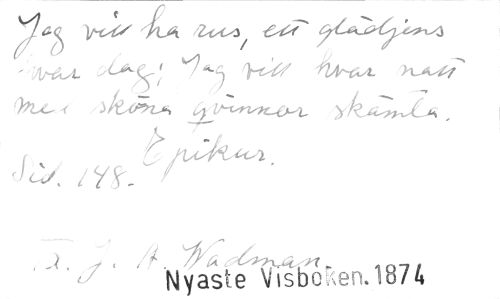 Jag vill ha rus, ett glädjens
hvar dag; Jag vill hvar natt
med sköna qvinnor skämta.
Epikur.
Sid. 148.
J. A. Wadman
Nyaste Visboken. 1874